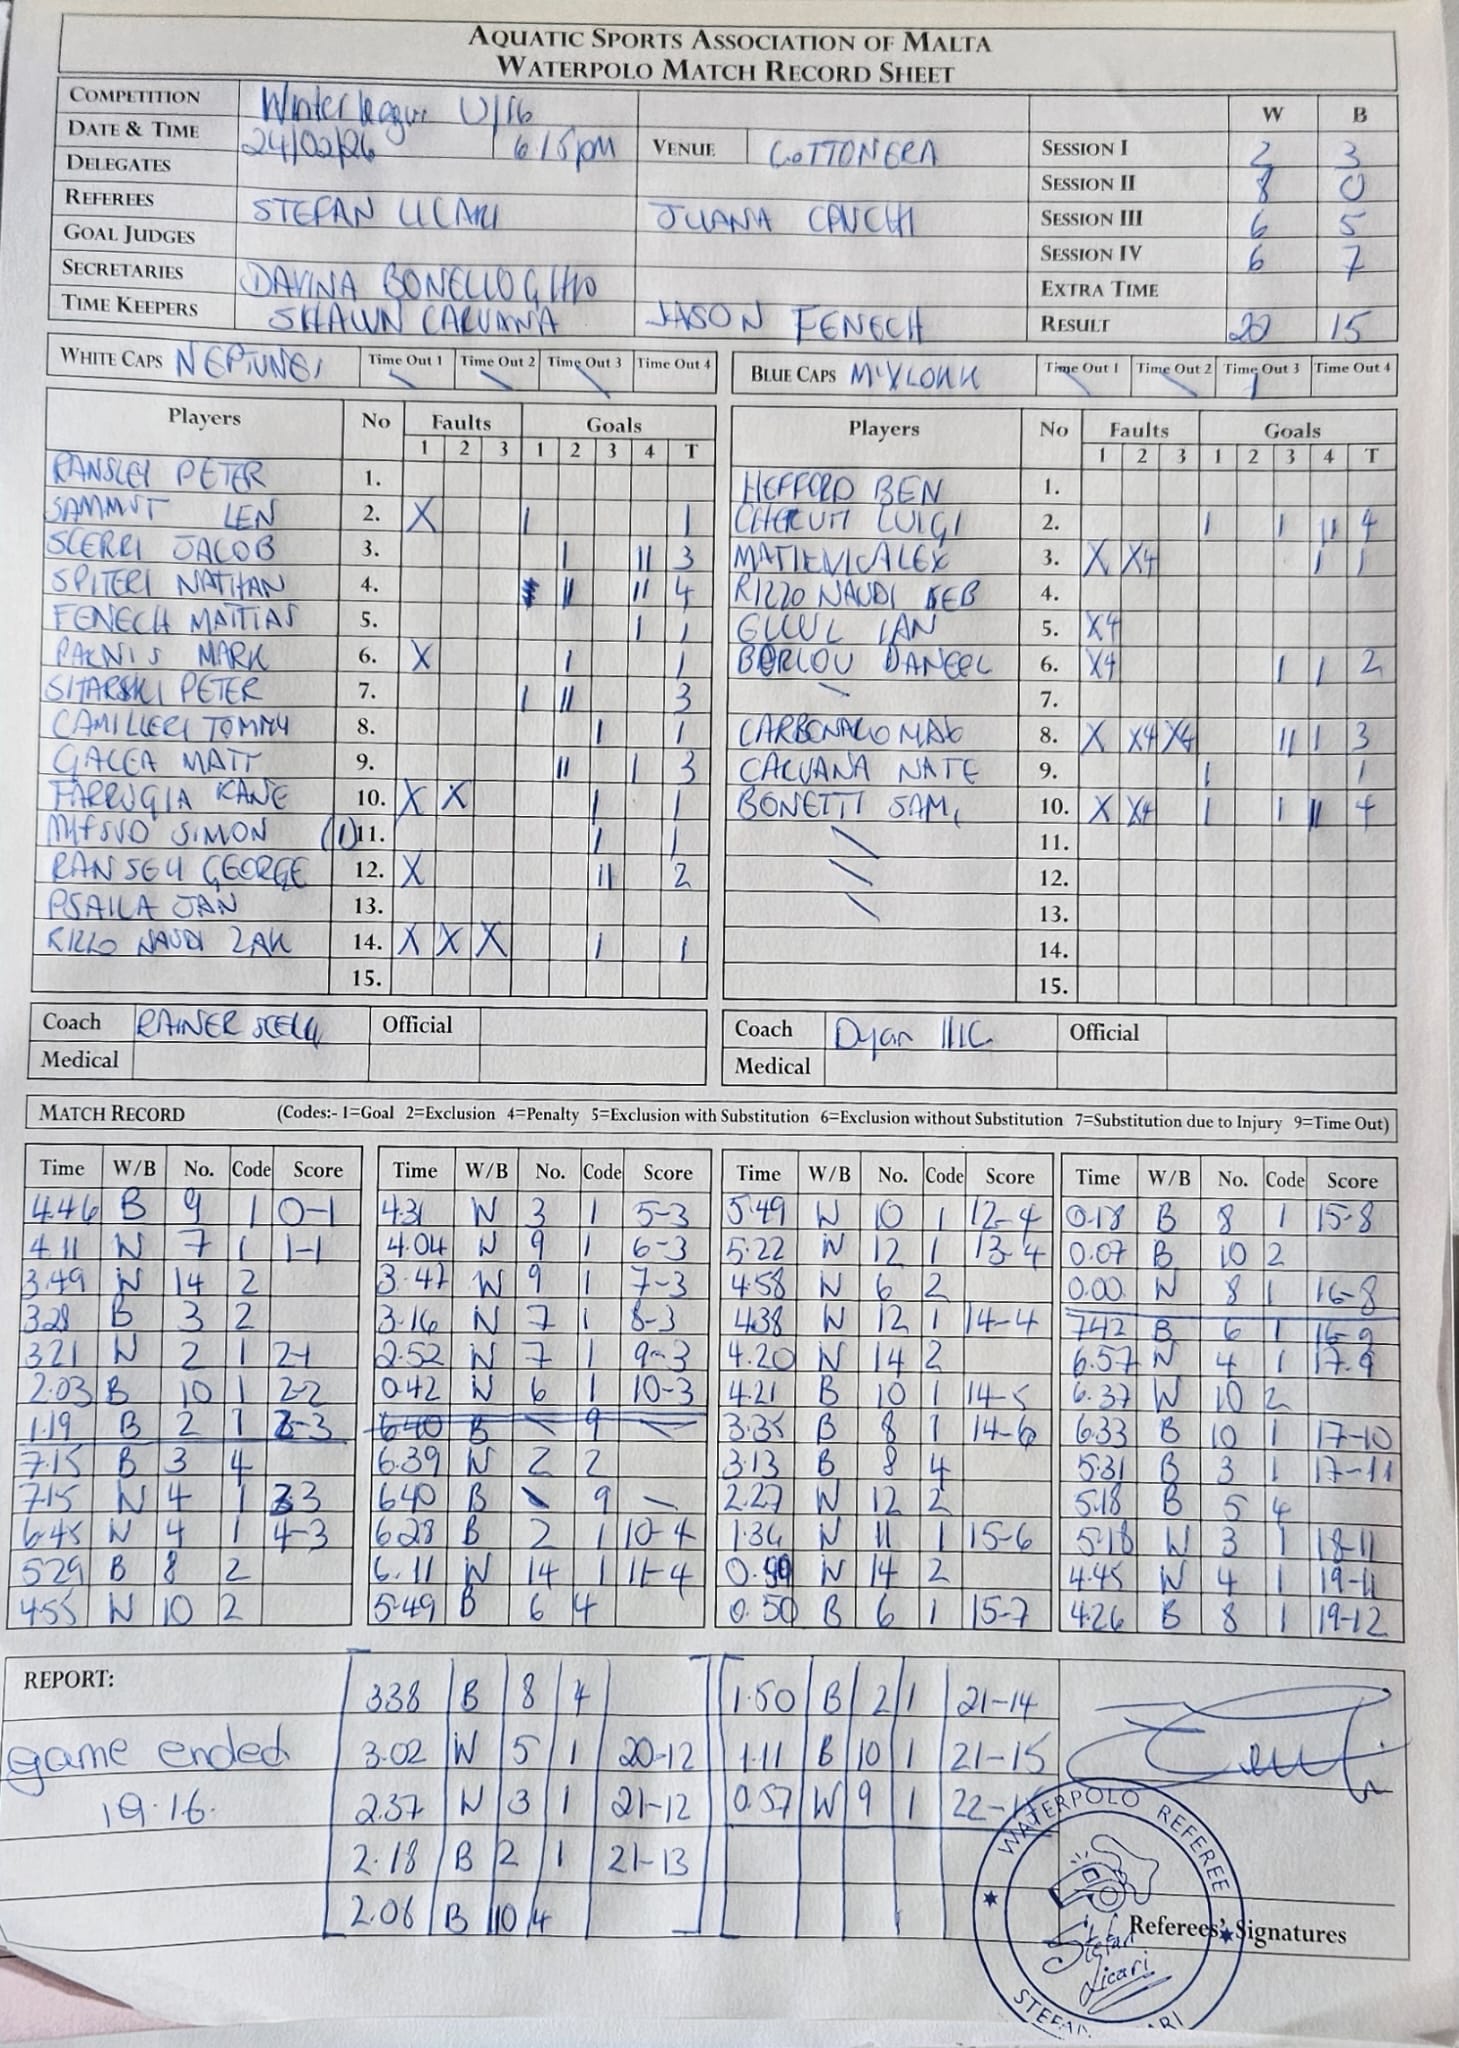 AQUATIC SPORTS ASSOCIATION OF MALTA
WATERPOLO MATCH RECORD SHEET
COMPETITION Winter league U/16 W B
DATE & TIME 24/02/26 6.15pm VENUE COTTONERA SESSION I 2 3
DELEGATES SESSION II 8 0
REFEREES STEFAN LICARI JUANA CAUCHI SESSION III 6 5
GOAL JUDGES SESSION IV 6 7
SECRETARIES DAVINA BONELLO EXTRA TIME
TIME KEEPERS SHAWN CARUANA JASON FENECH RESULT 15
WHITE CAPS NEPTUNES Time Out 1 Time Out 2 Time Out 3 Time Out 4
BLUE CAPS M'XLOKK Time Out 1 Time Out 2 Time Out 3 Time Out 4
Players No Faults Goals
1 2 3 1 2 3 4 T
RANSLEY PETER 1.
SAMMUT LEN 2. X I 1
SCERRI JACOB 3. I II 3
SPITERI NATHAN 4. II II 4
FENECH MATTIAS 5. I 1
PACNIS MARK 6. X I 1
SITARSKI PETER 7. I II 3
CAMILLERI TOMMY 8. I 1
GALEA MATT 9. II I 3
FARRUGIA KANE 10. X X I 1
MIFSUD SIMON (1) 11. I 1
RANSLEY GEORGE 12. X II 2
PSAILA JAN 13.
RIZZO NAUDI ZAK 14. X X X I 1
15.
Players No Faults Goals
1 2 3 1 2 3 4 T
HEFFORD BEN 1.
CHERUTI LUIGI 2. I I II 4
MATIEVIC ALEX 3. X X4 I 1
RIZZO NAUDI SEB 4.
IAN 5. X4
6. X4 I I 2
7.
CARBONARO MAX 8. X X4 X4 II I 3
CARUANA NATE 9. I 1
BONETTI SAM 10. X X4 I I II 4
11.
12.
13.
14.
15.
Coach RAINER Official
Medical
Coach Official
Medical
MATCH RECORD (Codes:- 1=Goal 2=Exclusion 4=Penalty 5=Exclusion with Substitution 6=Exclusion without Substitution 7=Substitution due to Injury 9=Time Out)
Time W/B No. Code Score
4.46 B 9 1 0-1
4.11 W 7 1 1-1
3.49 W 14 2
3.28 B 3 2
3.21 W 2 1 2-1
2.03 B 10 1 2-2
1.19 B 2 1 2-3
7.15 B 3 4
7.15 W 4 1 3-3
6.45 W 4 1 4-3
5.29 B 8 2
4.55 W 10 2
Time W/B No. Code Score
4.31 W 3 1 5-3
4.04 W 9 1 6-3
3.47 W 9 1 7-3
3.16 W 7 1 8-3
2.52 W 7 1 9-3
0.42 W 6 1 10-3
6.40 B - 9 -
6.39 W 2 2
6.40 B - 9 -
6.28 B 2 1 10-4
6.11 W 14 1 11-4
5.49 B 6 4
Time W/B No. Code Score
5.49 W 10 1 12-4
5.22 W 12 1 13-4
4.58 W 6 2
4.38 W 12 1 14-4
4.20 W 14 2
4.21 B 10 1 14-5
3.35 B 8 1 14-6
3.13 B 8 4
2.27 W 12 2
1.36 W 11 1 15-6
W 14 2
0.50 B 6 1 15-7
Time W/B No. Code Score
0.18 B 8 1 15-8
0.07 B 10 2
0.00 W 8 1 16-8
7.42 B 6 1 16-9
6.57 W 4 1 17-9
6.37 W 10 2
6.33 B 10 1 17-10
5.31 B 3 1 17-11
5.18 B 5 4
5.18 W 3 1 18-11
4.45 W 4 1 19-11
4.26 B 8 1 19-12
REPORT:
game ended
19.16.
3.38 B 8 4
3.02 W 5 1 20-12
2.37 W 3 1 21-12
2.18 B 2 1 21-13
2.06 B 10 4
1.50 B 2 1 21-14
1.11 B 10 1 21-15
0.57 W 9 1 22-
WATERPOLO REFEREE
Stefan Licari
Referees' Signatures